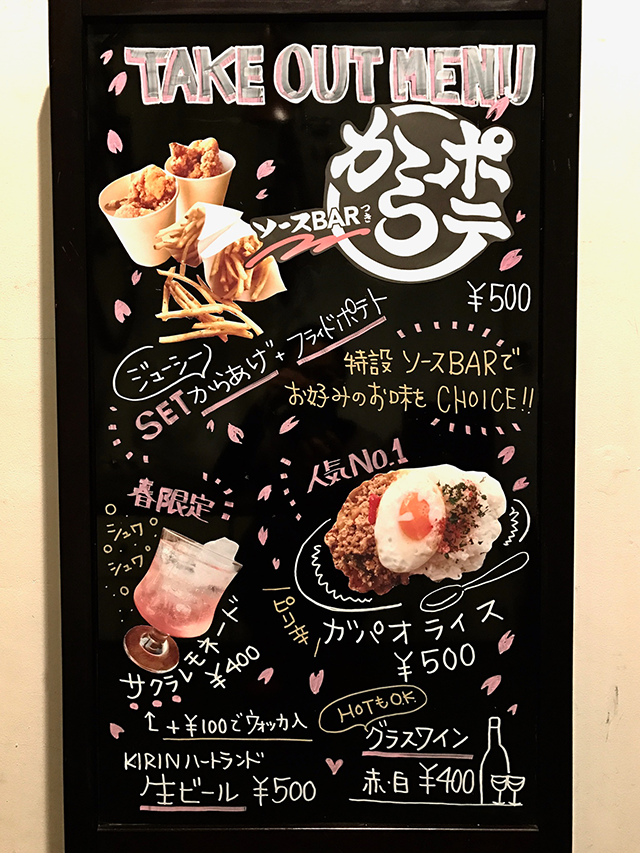 TAKE OUT MENU
からポテ
ソースBARつき
¥500
ジューシー
SETからあげ+フライドポテト
特設 ソースBARで
お好みのお味を CHOICE!!
人気No.1
春限定
シュワ
シュワ
ピリ辛
ガパオライス
¥500
サクラレモネード
¥400
↑+¥100でウォッカ入
HOTもO.K.
KIRINハートランド
生ビール ¥500
グラスワイン
赤・白 ¥400